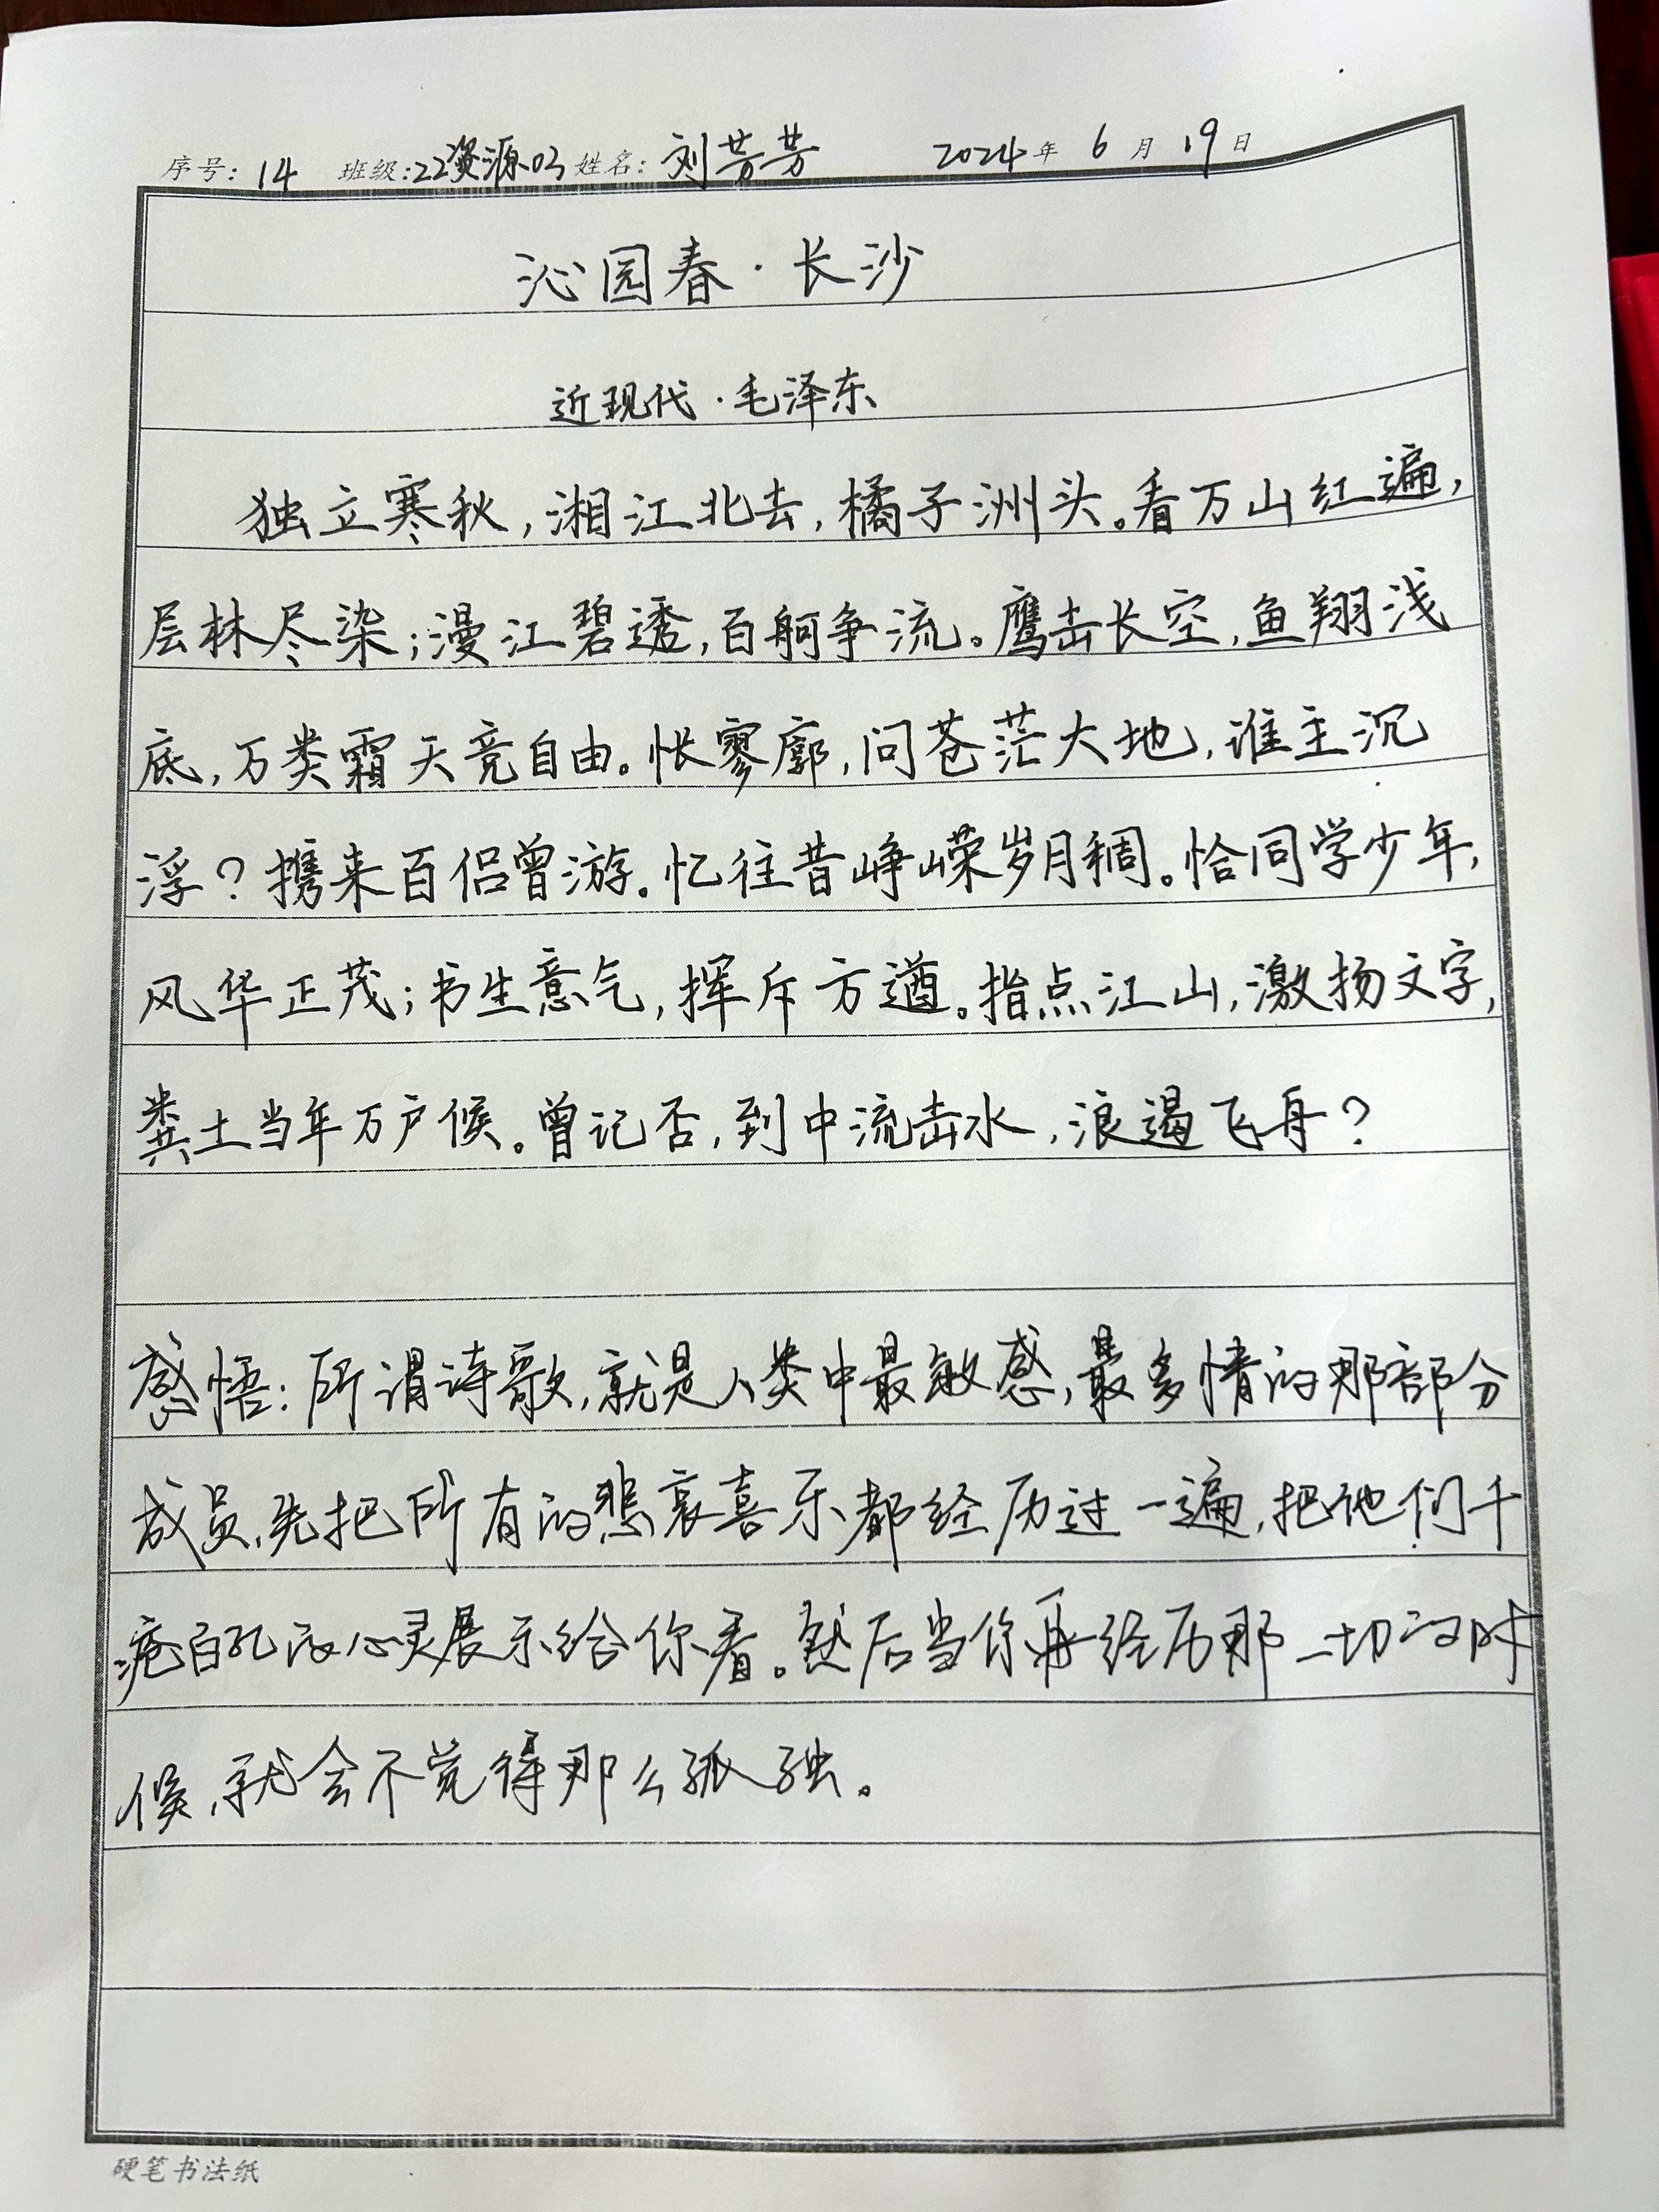 序号：14 班级：22资源03 姓名：刘芳芳 2024年6月19日
沁园春·长沙
近现代·毛泽东
独立寒秋，湘江北去，橘子洲头。看万山红遍，
层林尽染；漫江碧透，百舸争流。鹰击长空，鱼翔浅
底，万类霜天竞自由。怅寥廓，问苍茫大地，谁主沉
浮？携来百侣曾游。忆往昔峥嵘岁月稠。恰同学少年，
风华正茂；书生意气，挥斥方遒。指点江山，激扬文字，
粪土当年万户候。曾记否，到中流击水，浪遏飞舟？
感悟：所谓诗歌，就是人类中最敏感，最多情的那部分
成员，先把所有的悲哀喜乐都经历过一遍，把他们千
疮百孔的心灵展示给你看。然后当你再经历那一切的时
候，就会不觉得那么孤独。
硬笔书法纸